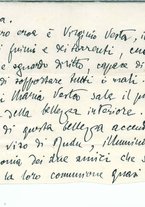 a.
cosa è Virginio Vesta, i
fiumi e dei torrenti, cun
e sguardo diritto, capace di
di sopportare tutti i mali
Maria Vesta sale il p
della bellezza interiore.
di questa bellezza accend
viso di Dudù, illumin
onia dei due amici che s
la loro comunione quasi